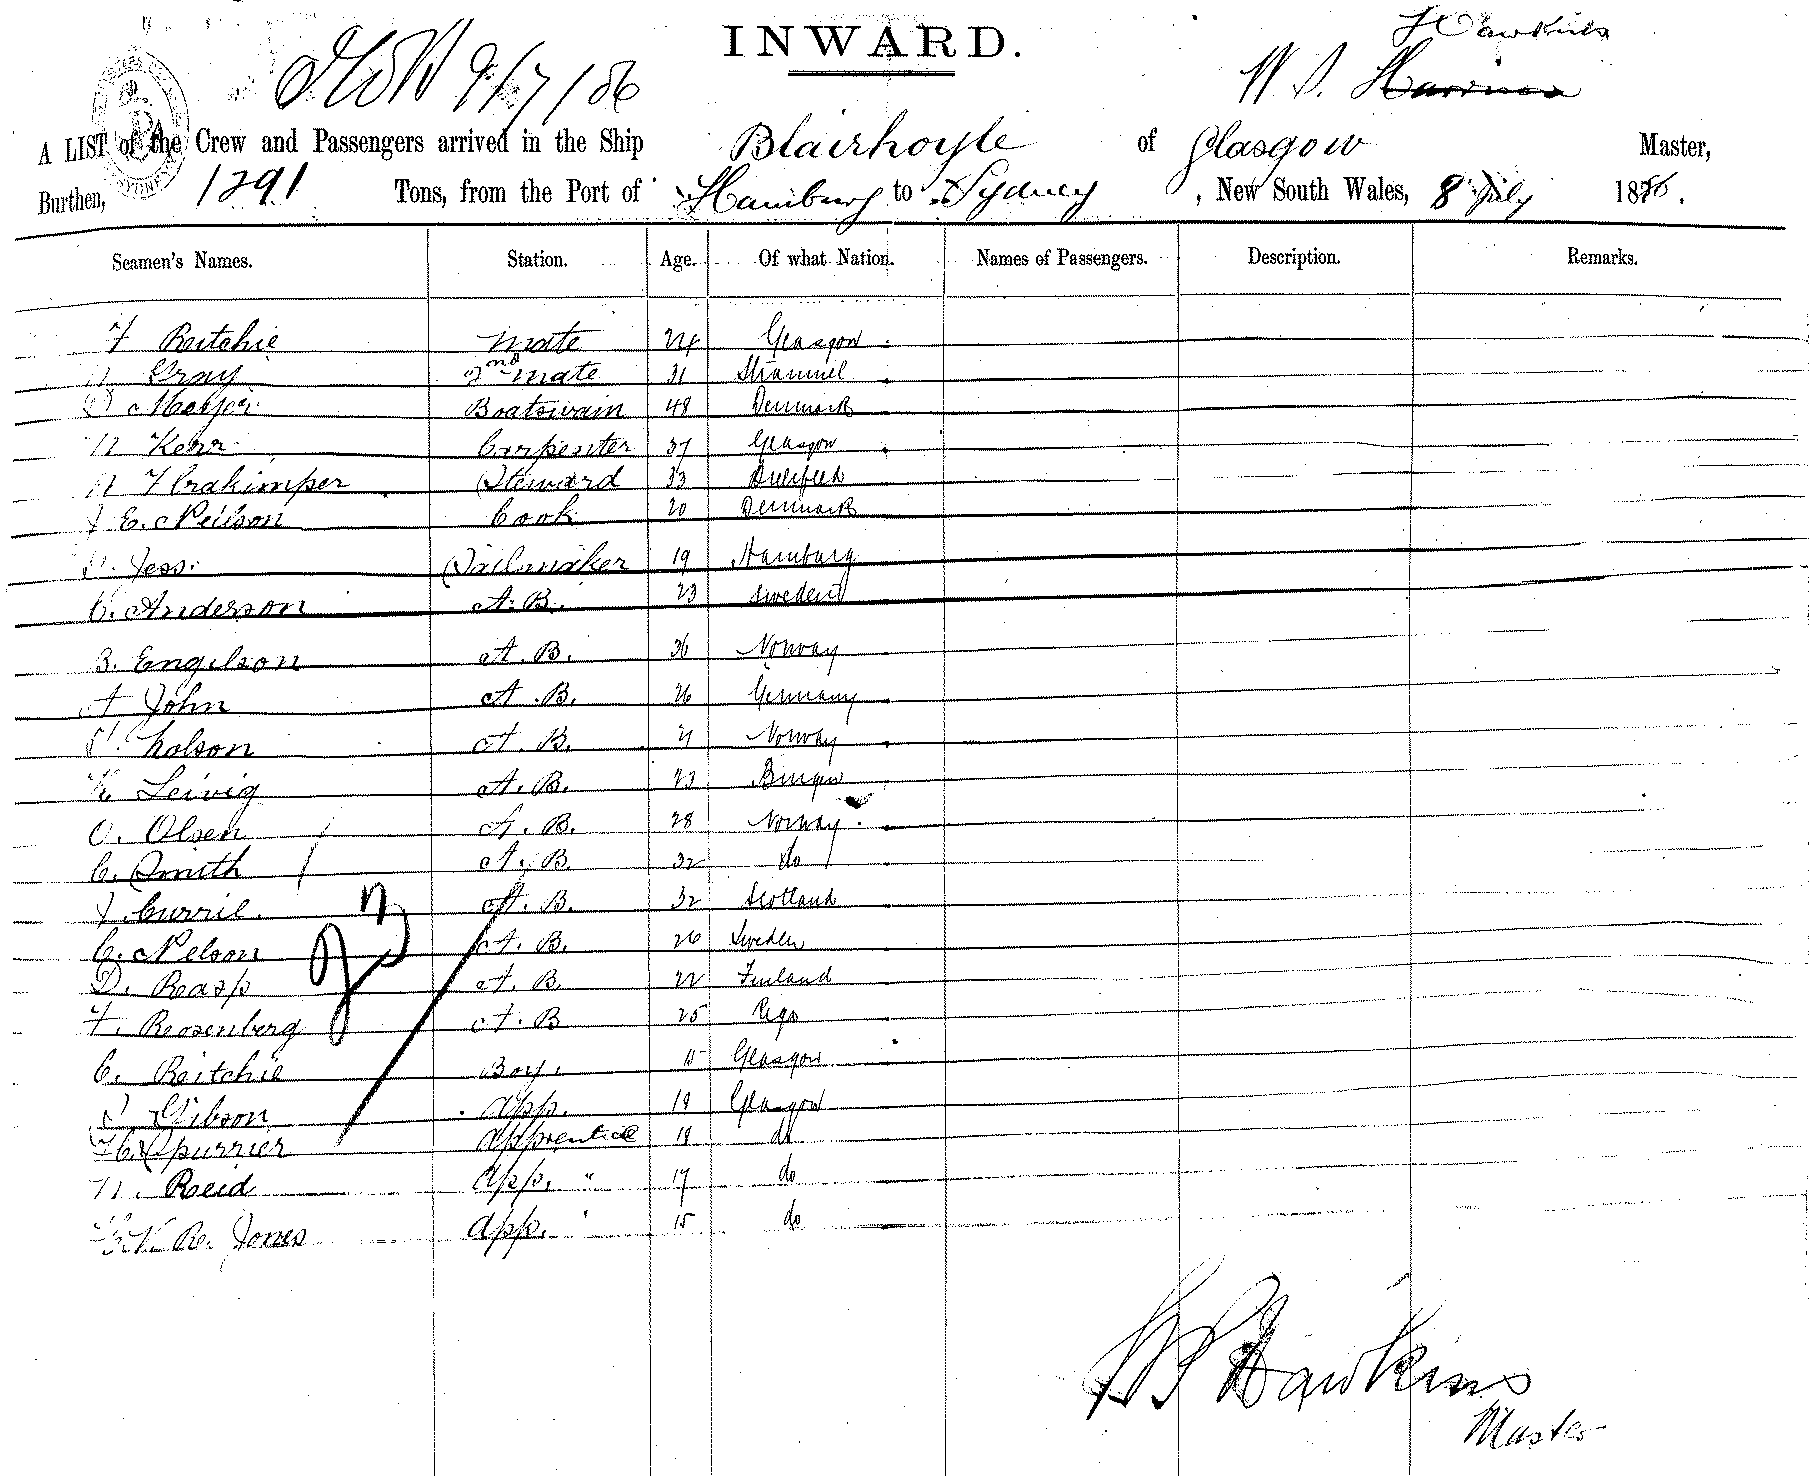 INWARD.
Hawkins
9/7/86
W. S.
A LIST of the Crew and Passengers arrived in the Ship Blairhoyle of Glasgow Master,
Burthen, 1291 Tons, from the Port of Hamburg to Sydney, New South Wales, 8 July 1886.
Seamen's Names. Station. Age. Of what Nation. Names of Passengers. Description. Remarks.
Ritchie Mate 24 Glasgow
Gray 2nd Mate 31
Meyer Boatswain 48 Denmark
Kerr Carpenter 37 Glasgow
Steward 33
J E. Neilson Cook 20 Denmark
Jess. Sailmaker 19 Hamburg
C. Anderson A. B. 23 Sweden
B. Engelson A. B. 36 Norway
A John A. B. 26 Germany
A. B. 21 Norway
A. B. 23
O. Olsen A. B. 28 Norway
C. Smith A. B. 32 do
J Currie A. B. 32 Scotland
C. Nelson A. B. 26 Sweden
D. Rasp A. B. 22 Finland
F. Rosenberg A. B 25 Riga
C. Ritchie Boy. 15 Glasgow
Gibson App. 18 Glasgow
H. Spurrier Apprentice 18 do
Reid App. " 17 do
R. Jones App. " 15 do
Hawkins
Master